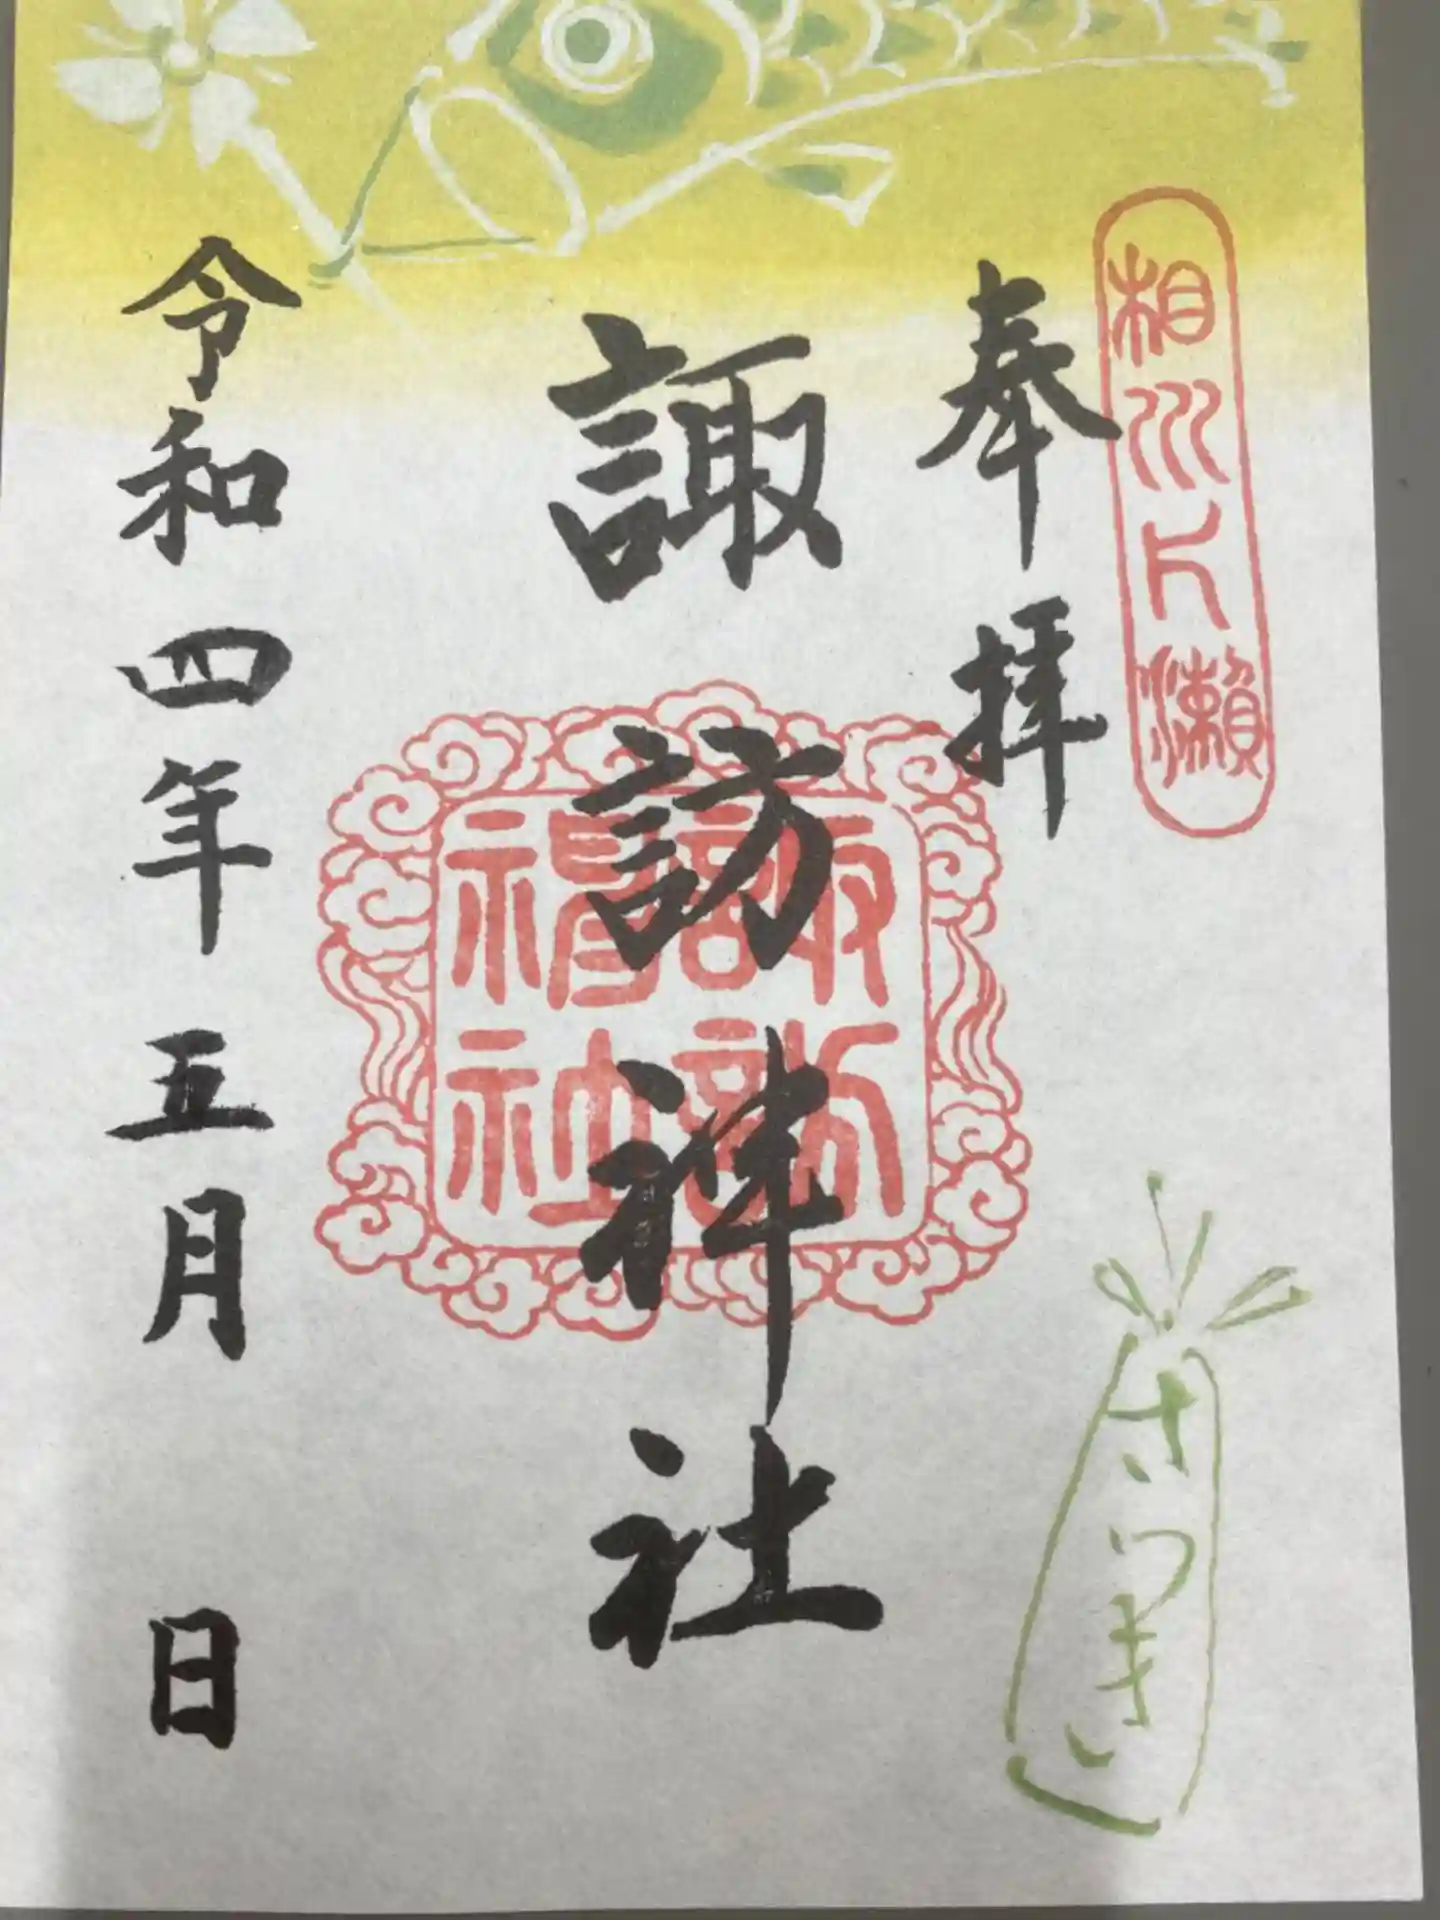 相州片瀬
奉拝
諏訪神社
諏訪
神社
令和四年五月　日
さつき